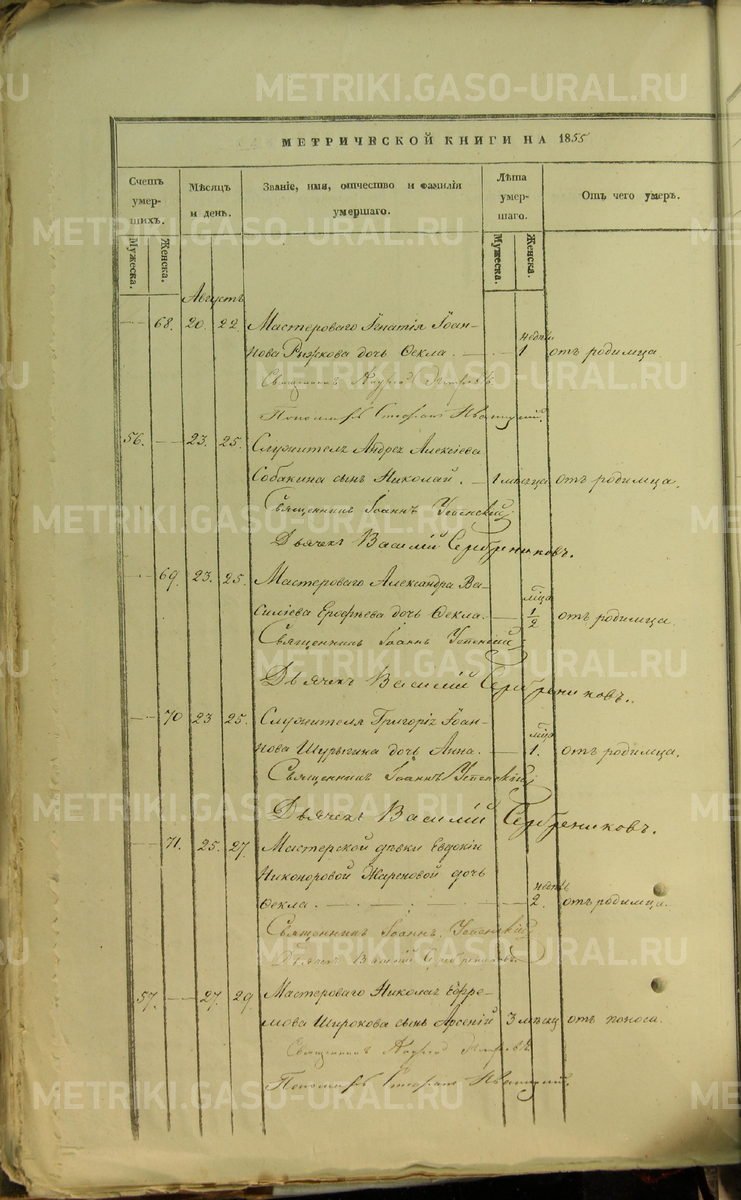 МЕТРИЧЕСКОЙ КНИГИ НА 1855
Счетъ умершихъ.
Мѣсяцъ и день.
Званіе, имя, отчество и фамилія умершаго.
Лѣта умершаго.
Отъ чего умеръ.
Мужеска.
Женска.
Мужеска.
Женска.
Августъ
68. 20. 22. Мастероваго Игнатія Іоан-
недѣли
нова Рыжкова дочь Ѳекла. 1 отъ родимца
Священникъ Андрей
Пономарь
56. 23. 25. Служителя Андрея Алексіева
Собакина сынъ Николай. 1 мѣсяца отъ родимца.
Священникъ Іоаннъ Успенскій
Дьячекъ Василій Серебрениковъ.
69. 23. 25. Мастероваго Александра Ва-
мѣсца
силіева Ерофѣева дочь Ѳекла. 1/2 отъ родимца.
Священникъ Іоаннъ Успенскій
Дьячекъ Василій Серебрениковъ.
70 23 25. Служителя Григорія Іоан-
мѣсца
нова Шурыгина дочь Анна. 1. отъ родимца.
Священникъ Іоаннъ Успенскій
Дьячекъ Василій Серебрениковъ.
71. 25. 27. Мастерской дѣвки Евдокіи
Никоноровой Жареновой дочь
недѣль
Ѳекла. 2. отъ родимца.
Священникъ Іоаннъ Успенскій
Дьячекъ Василій Серебрениковъ
57. 27. 29. Мастероваго Николая Ефре-
мова Широкова сынъ Арсеній 3 мѣсяц отъ поноса.
Священникъ Андрей
Пономарь
METRIKI.GASO-URAL.RU